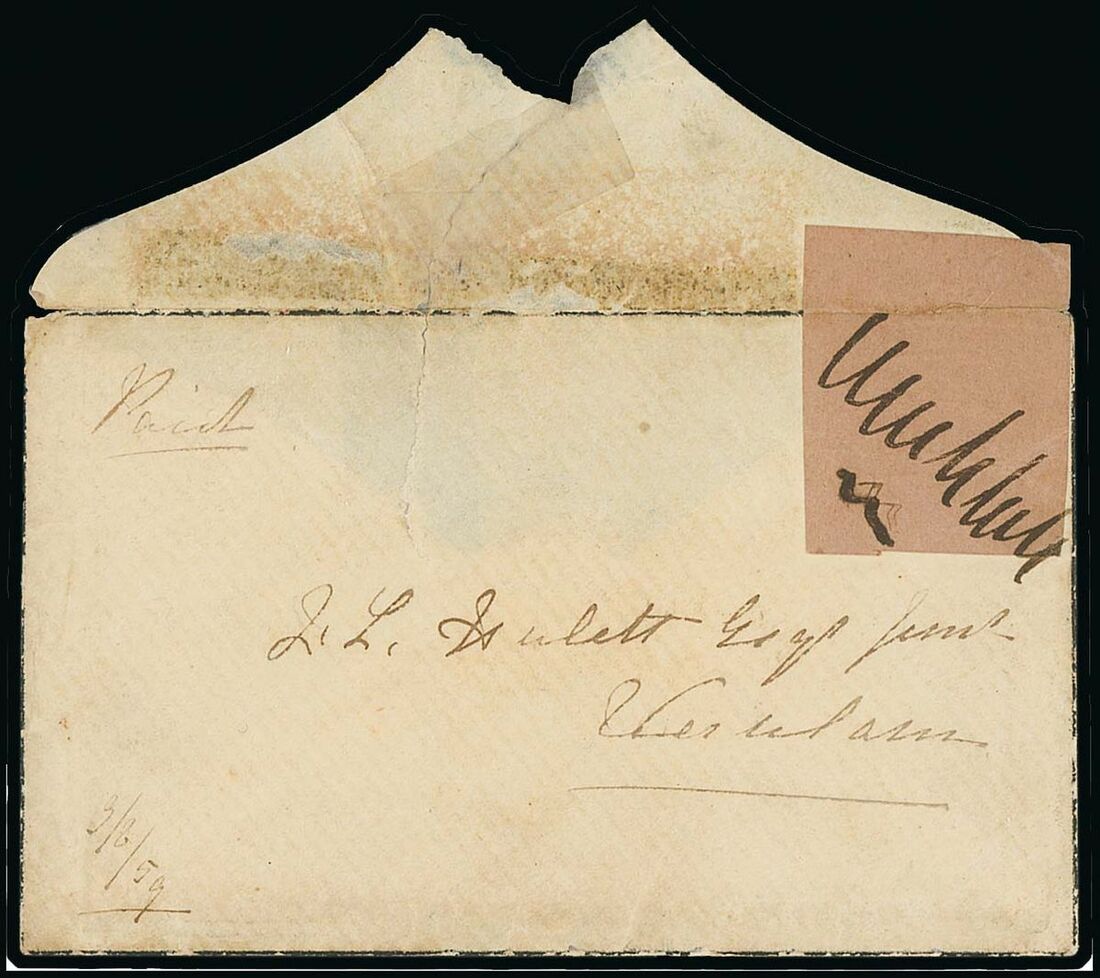 Paid
J. L. Hulett Esqr Junr
Verulam
3/6/59